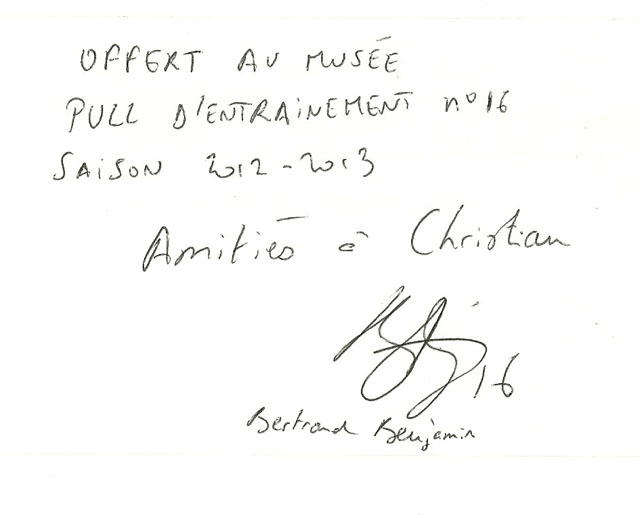 OFFERT AU MUSÉE
PULL D'ENTRAiNEMENT n° 16
SAiSON 2012-2013
Amitiés à Christian
16
Bertrand Benjamin